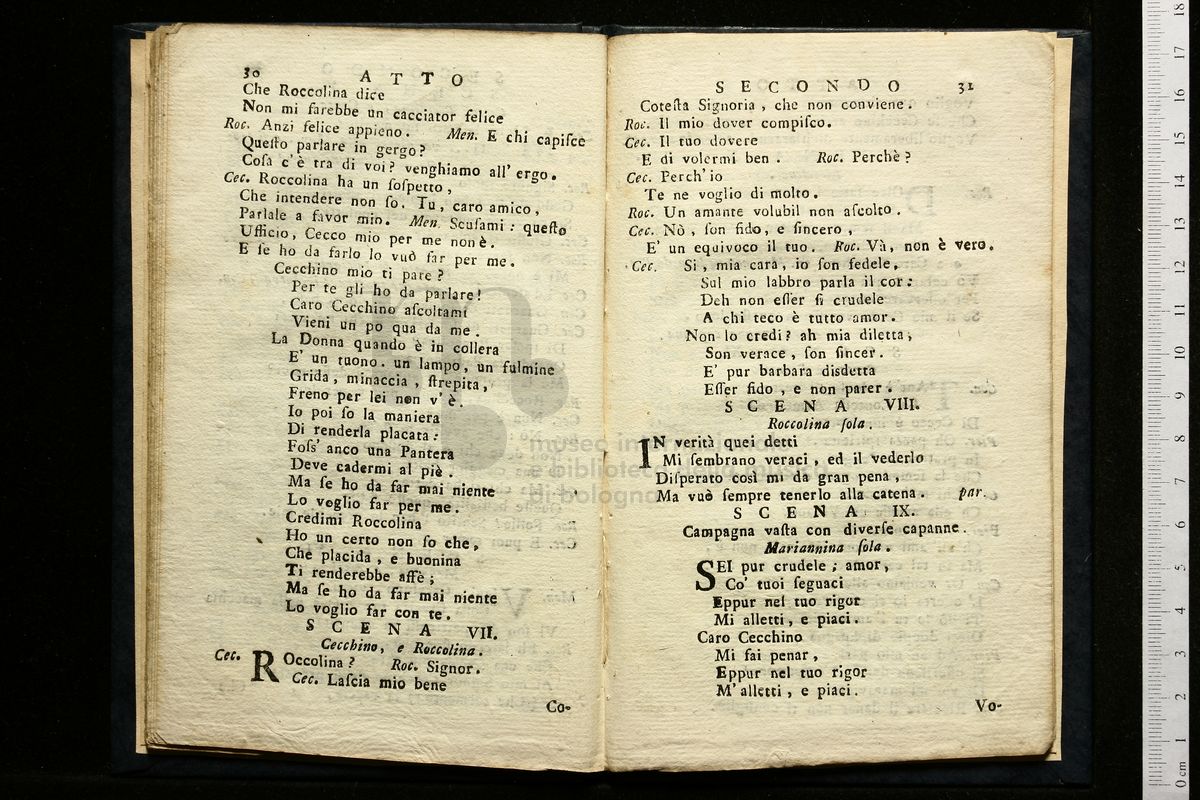 30 ATTO
Che Roccolina dice
Non mi farebbe un cacciator felice
Roc. Anzi felice appieno. Men. E chi capiſce
Queſto parlare in gergo?
Coſa c'è tra di voi? venghiamo all' ergo.
Cec. Roccolina ha un ſoſpetto,
Che intendere non ſo. Tu, caro amico,
Parlale a favor mio. Men. Scuſami: queſto
Ufficio, Cecco mio per me non è.
E ſe ho da farlo lo vuò far per me.
Cecchino mio ti pare?
Per te gli ho da parlare!
Caro Cecchino aſcoltami
Vieni un po qua da me.
La Donna quando è in collera
E' un tuono. un lampo, un fulmine
Grida, minaccia, ſtrepita,
Freno per lei non v'è.
Io poi ſo la maniera
Di renderla placata:
Foſs' anco una Pantera
Deve cadermi al piè.
Ma ſe ho da far mai niente
Lo voglio far per me.
Credimi Roccolina
Ho un certo non ſo che,
Che placida, e buonina
Ti renderebbe affè;
Ma ſe ho da far mai niente
Lo voglio far con te.
SCENA VII.
Cecchino, e Roccolina.
Cec. ROccolina? Roc. Signor.
Cec. Laſcia mio bene
Co-
SECONDO 31
Coteſta Signoria, che non conviene.
Roc. Il mio dover compiſco.
Cec. Il tuo dovere
E di volermi ben. Roc. Perchè?
Cec. Perch' io
Te ne voglio di molto.
Roc. Un amante volubil non aſcolto.
Cec. Nò, ſon fido, e ſincero,
E' un equivoco il tuo. Roc. Và, non è vero.
Cec. Sì, mia cara, io ſon fedele,
Sul mio labbro parla il cor:
Deh non eſſer ſi crudele
A chi teco è tutto amor.
Non lo credi? ah mia diletta,
Son verace, ſon ſincer.
E' pur barbara disdetta
Eſſer fido, e non parer.
SCENA VIII.
Roccolina ſola.
IN verità quei detti
Mi ſembrano veraci, ed il vederlo
Diſperato così mi da gran pena,
Ma vuò ſempre tenerlo alla catena. par.
SCENA IX.
Campagna vaſta con diverſe capanne.
Mariannina ſola.
SEI pur crudele; amor,
Co' tuoi ſeguaci
Eppur nel tuo rigor
Mi alletti, e piaci.
Caro Cecchino
Mi fai penar,
Eppur nel tuo rigor
M' alletti, e piaci.
Vo-